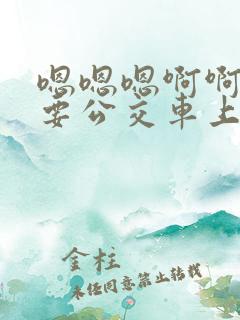 嗯嗯嗯啊啊
要公交車上
金柱
未经同意禁止转载